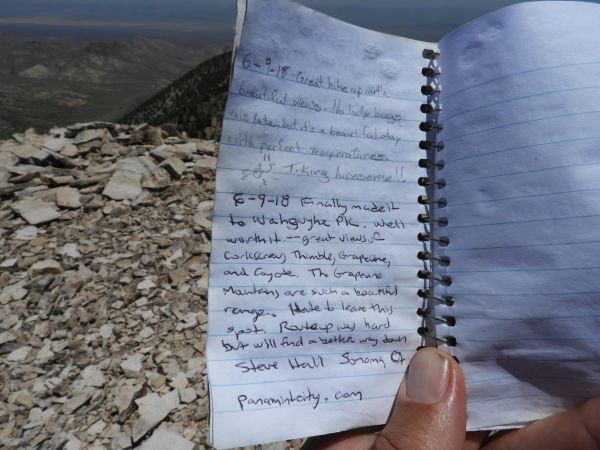 6-9-18 Great hike up with
beautiful views. No lady bugs
this late, but it's a beautiful day
with perfect temperatures.
T. King
6-9-18 Finally made it
to Wahguyhe PK. Well
worth it -- great views of
Corkscrew, Thimble, Grapevine,
and Coyote. The Grapevine
Mountains are such a beautiful
range. Hate to leave this
spot. Route up was hard
but will find a better way down
Steve Hall Sonoma, CA
Panamintcity.com